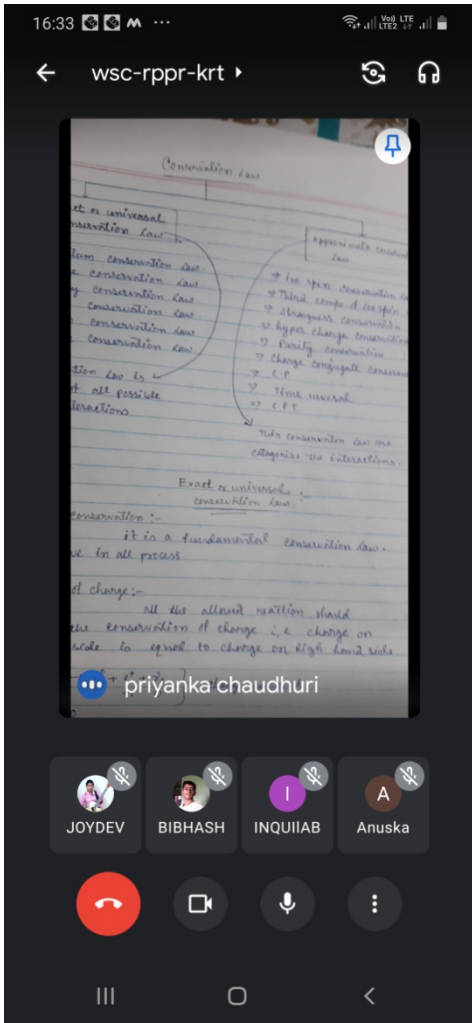 16:33
Vo)) LTE
LTE2
wsc-rppr-krt
Conservation Law
et or universal
nservation Law
Approximate conserva
Law
tum conservation Law
e conservation Law
y conservation Law
conservation Law
conservation Law
conservation Law
tion Law is
of all possible
teractions
→ Iso spin conservation
→ Third comp. of iso spin
→ strangness conservation
→ hyper charge conservation
→ Parity conservation
→ Charge conjugate conserva
→ C.P
→ Time reversal
→ CPT
conservation Law are
categorise the interactions.
Exact or universal :-
conservation Law
conservation :-
it is a fundamental conservation Law.
ve in all process
of charge:-
all the allowed reaction should
the conservation of charge i,e charge on
side is equal to charge on high hand side
priyanka chaudhuri
JOYDEV
BIBHASH
I
INQUIlAB
A
Anuska